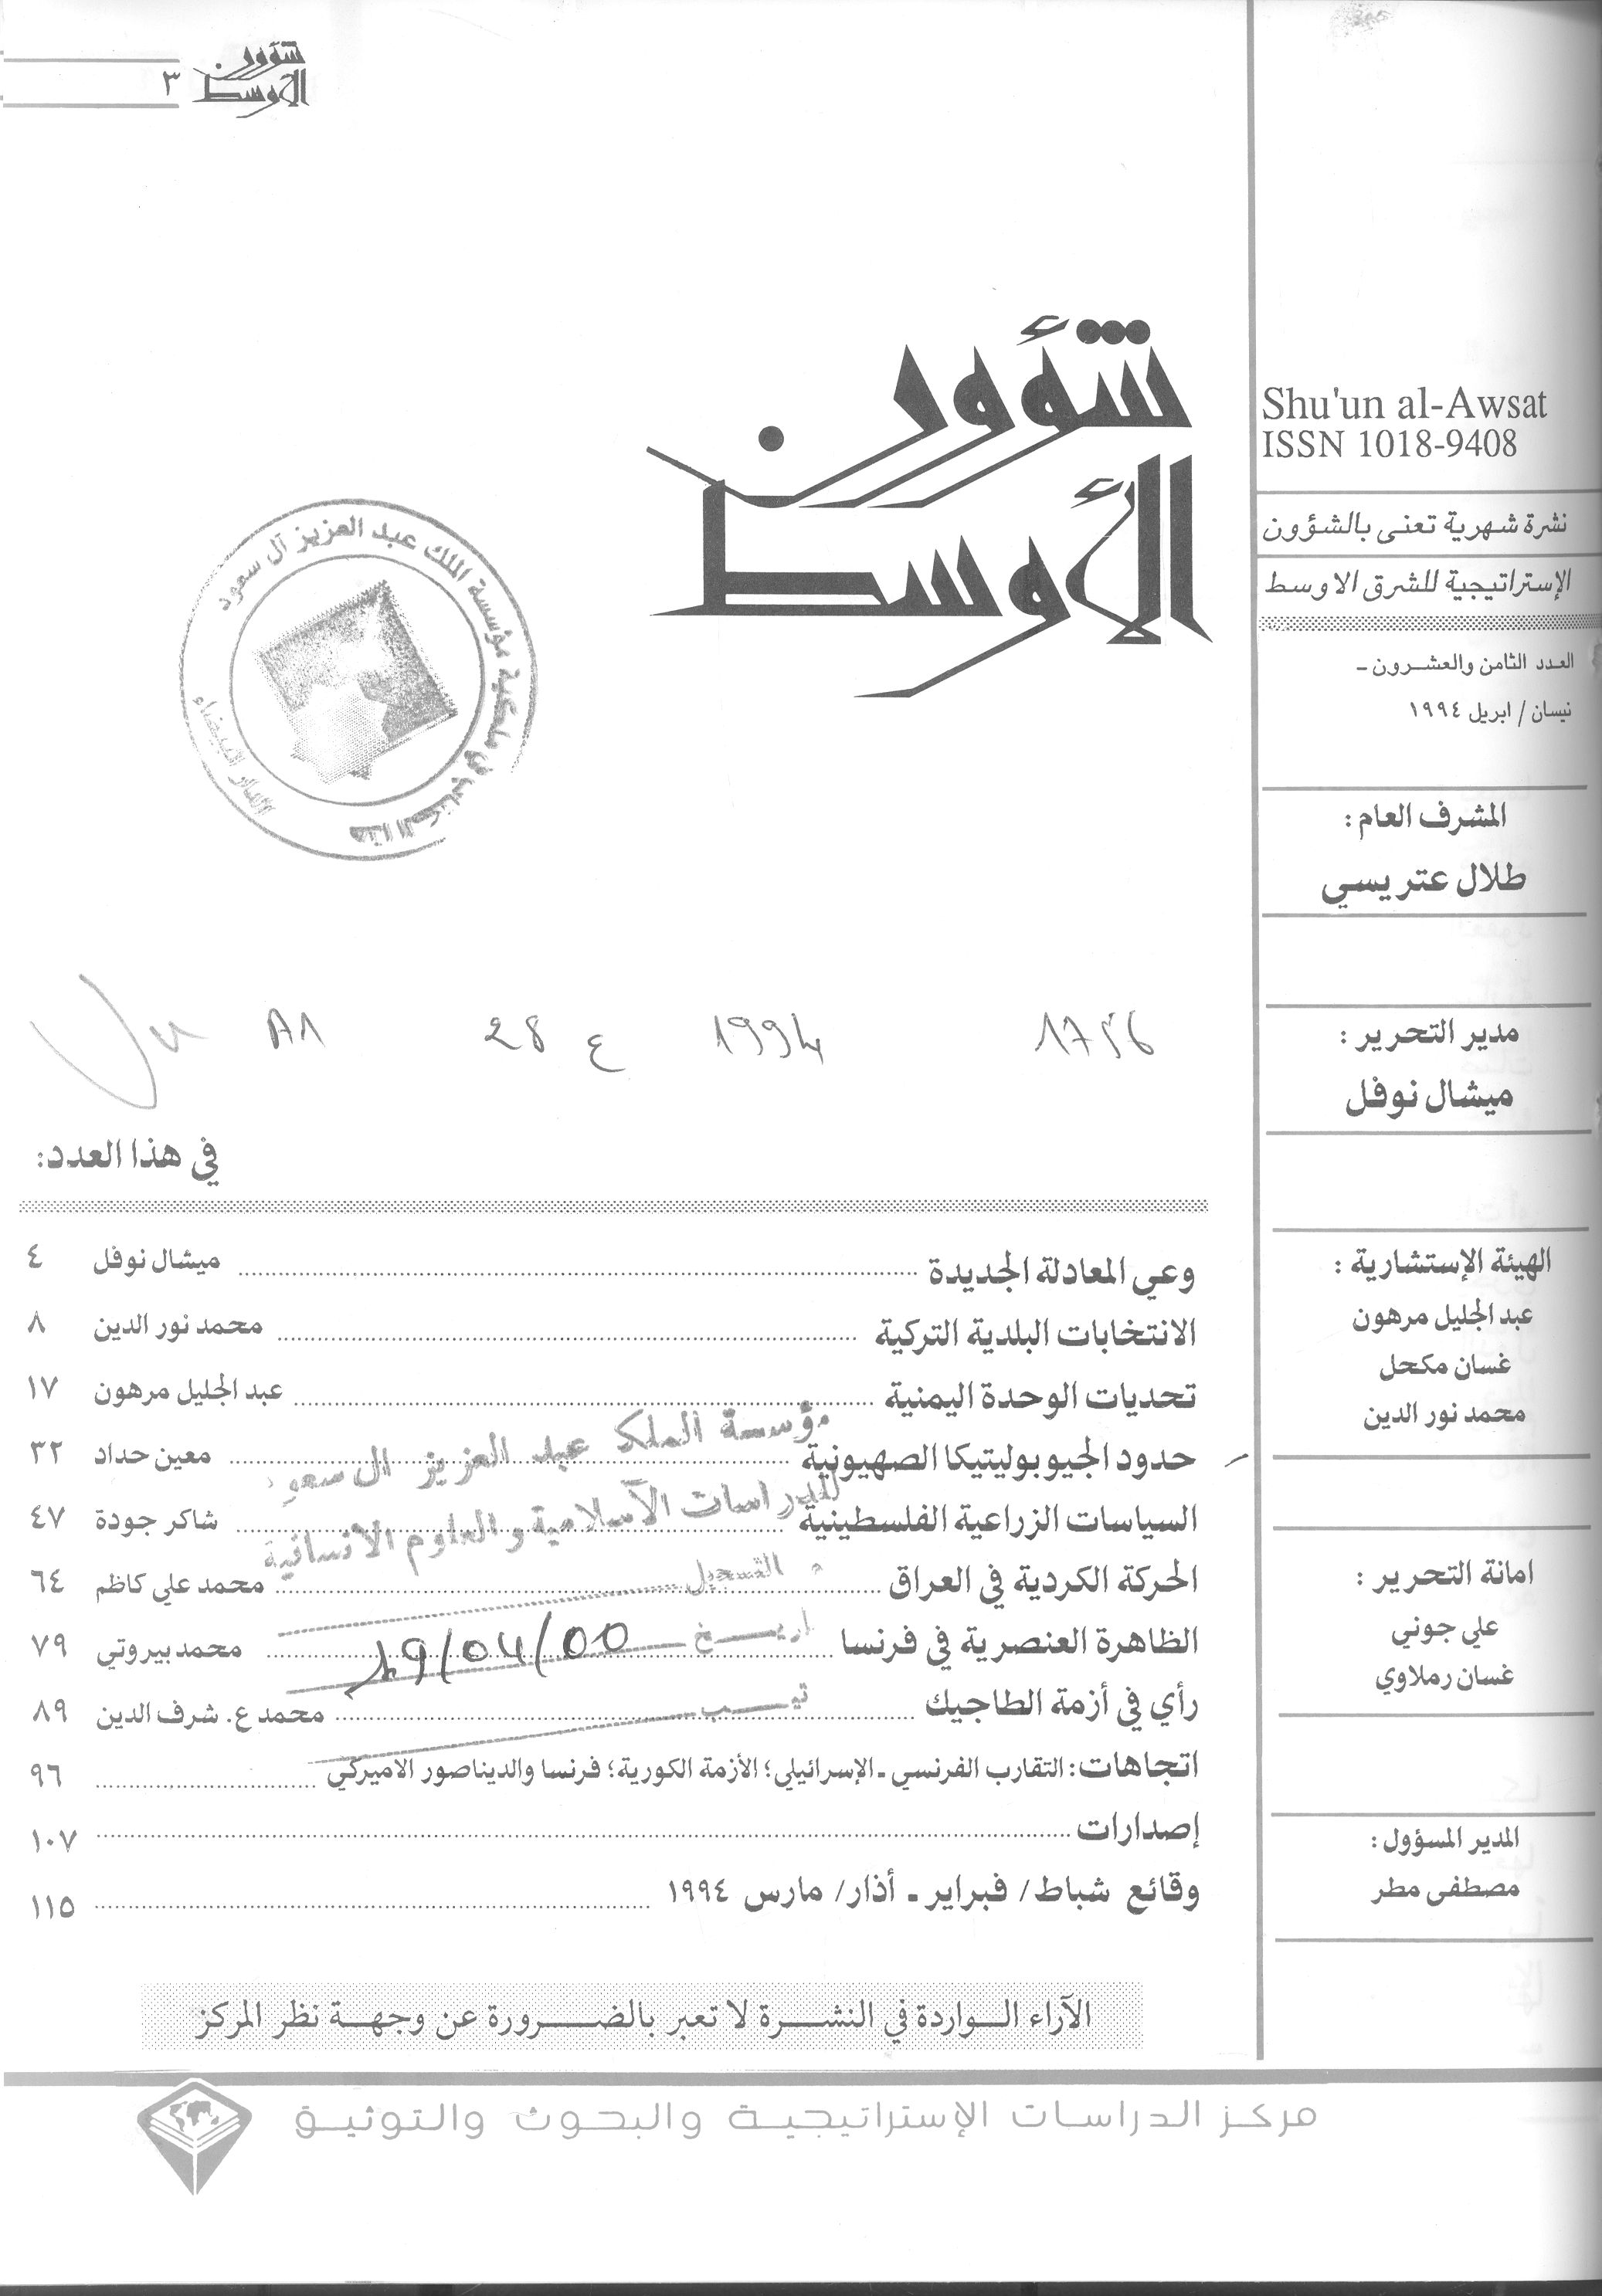 شؤون الأوسط
٣
شؤون
الأوسط
Shu'un al-Awsat
ISSN 1018-9408
نشرة شهرية تعنى بالشؤون
الإستراتيجية للشرق الاوسط
العدد الثامن والعشرون -
نيسان / ابريل ١٩٩٤
المشرف العام :
طلال عتريسي
مدير التحرير :
ميشال نوفل
الهيئة الإستشارية :
عبد الجليل مرهون
غسان مكحل
محمد نور الدين
امانة التحرير :
علي جوني
غسان رملاوي
المدير المسؤول :
مصطفى مطر
هذا الكتاب في ملكية مؤسسة الملك عبد العزيز آل سعود
الدار البيضاء
1994
ع 28
في هذا العدد:
وعي المعادلة الجديدة ميشال نوفل ٤
الانتخابات البلدية التركية محمد نور الدين ٨
تحديات الوحدة اليمنية عبد الجليل مرهون ١٧
حدود الجيوبوليتيكا الصهيونية معين حداد ٣٢
السياسات الزراعية الفلسطينية شاكر جودة ٤٧
الحركة الكردية في العراق محمد علي كاظم ٦٤
الظاهرة العنصرية في فرنسا محمد بيروتي ٧٩
رأي في أزمة الطاجيك محمد ع. شرف الدين ٨٩
اتجاهات: التقارب الفرنسي ـ الإسرائيلي؛ الأزمة الكورية؛ فرنسا والديناصور الاميركي ٩٦
إصدارات ١٠٧
وقائع شباط/ فبراير ـ أذار/ مارس ١٩٩٤ ١١٥
مؤسسة الملك عبد العزيز ال سعود
للدراسات الآسلامية والعلوم الانسانية
التسجيل
19/04/00
الآراء الواردة في النشرة لا تعبر بالضرورة عن وجهة نظر المركز
مركز الدراسات الإستراتيجية والبحوث والتوثيق